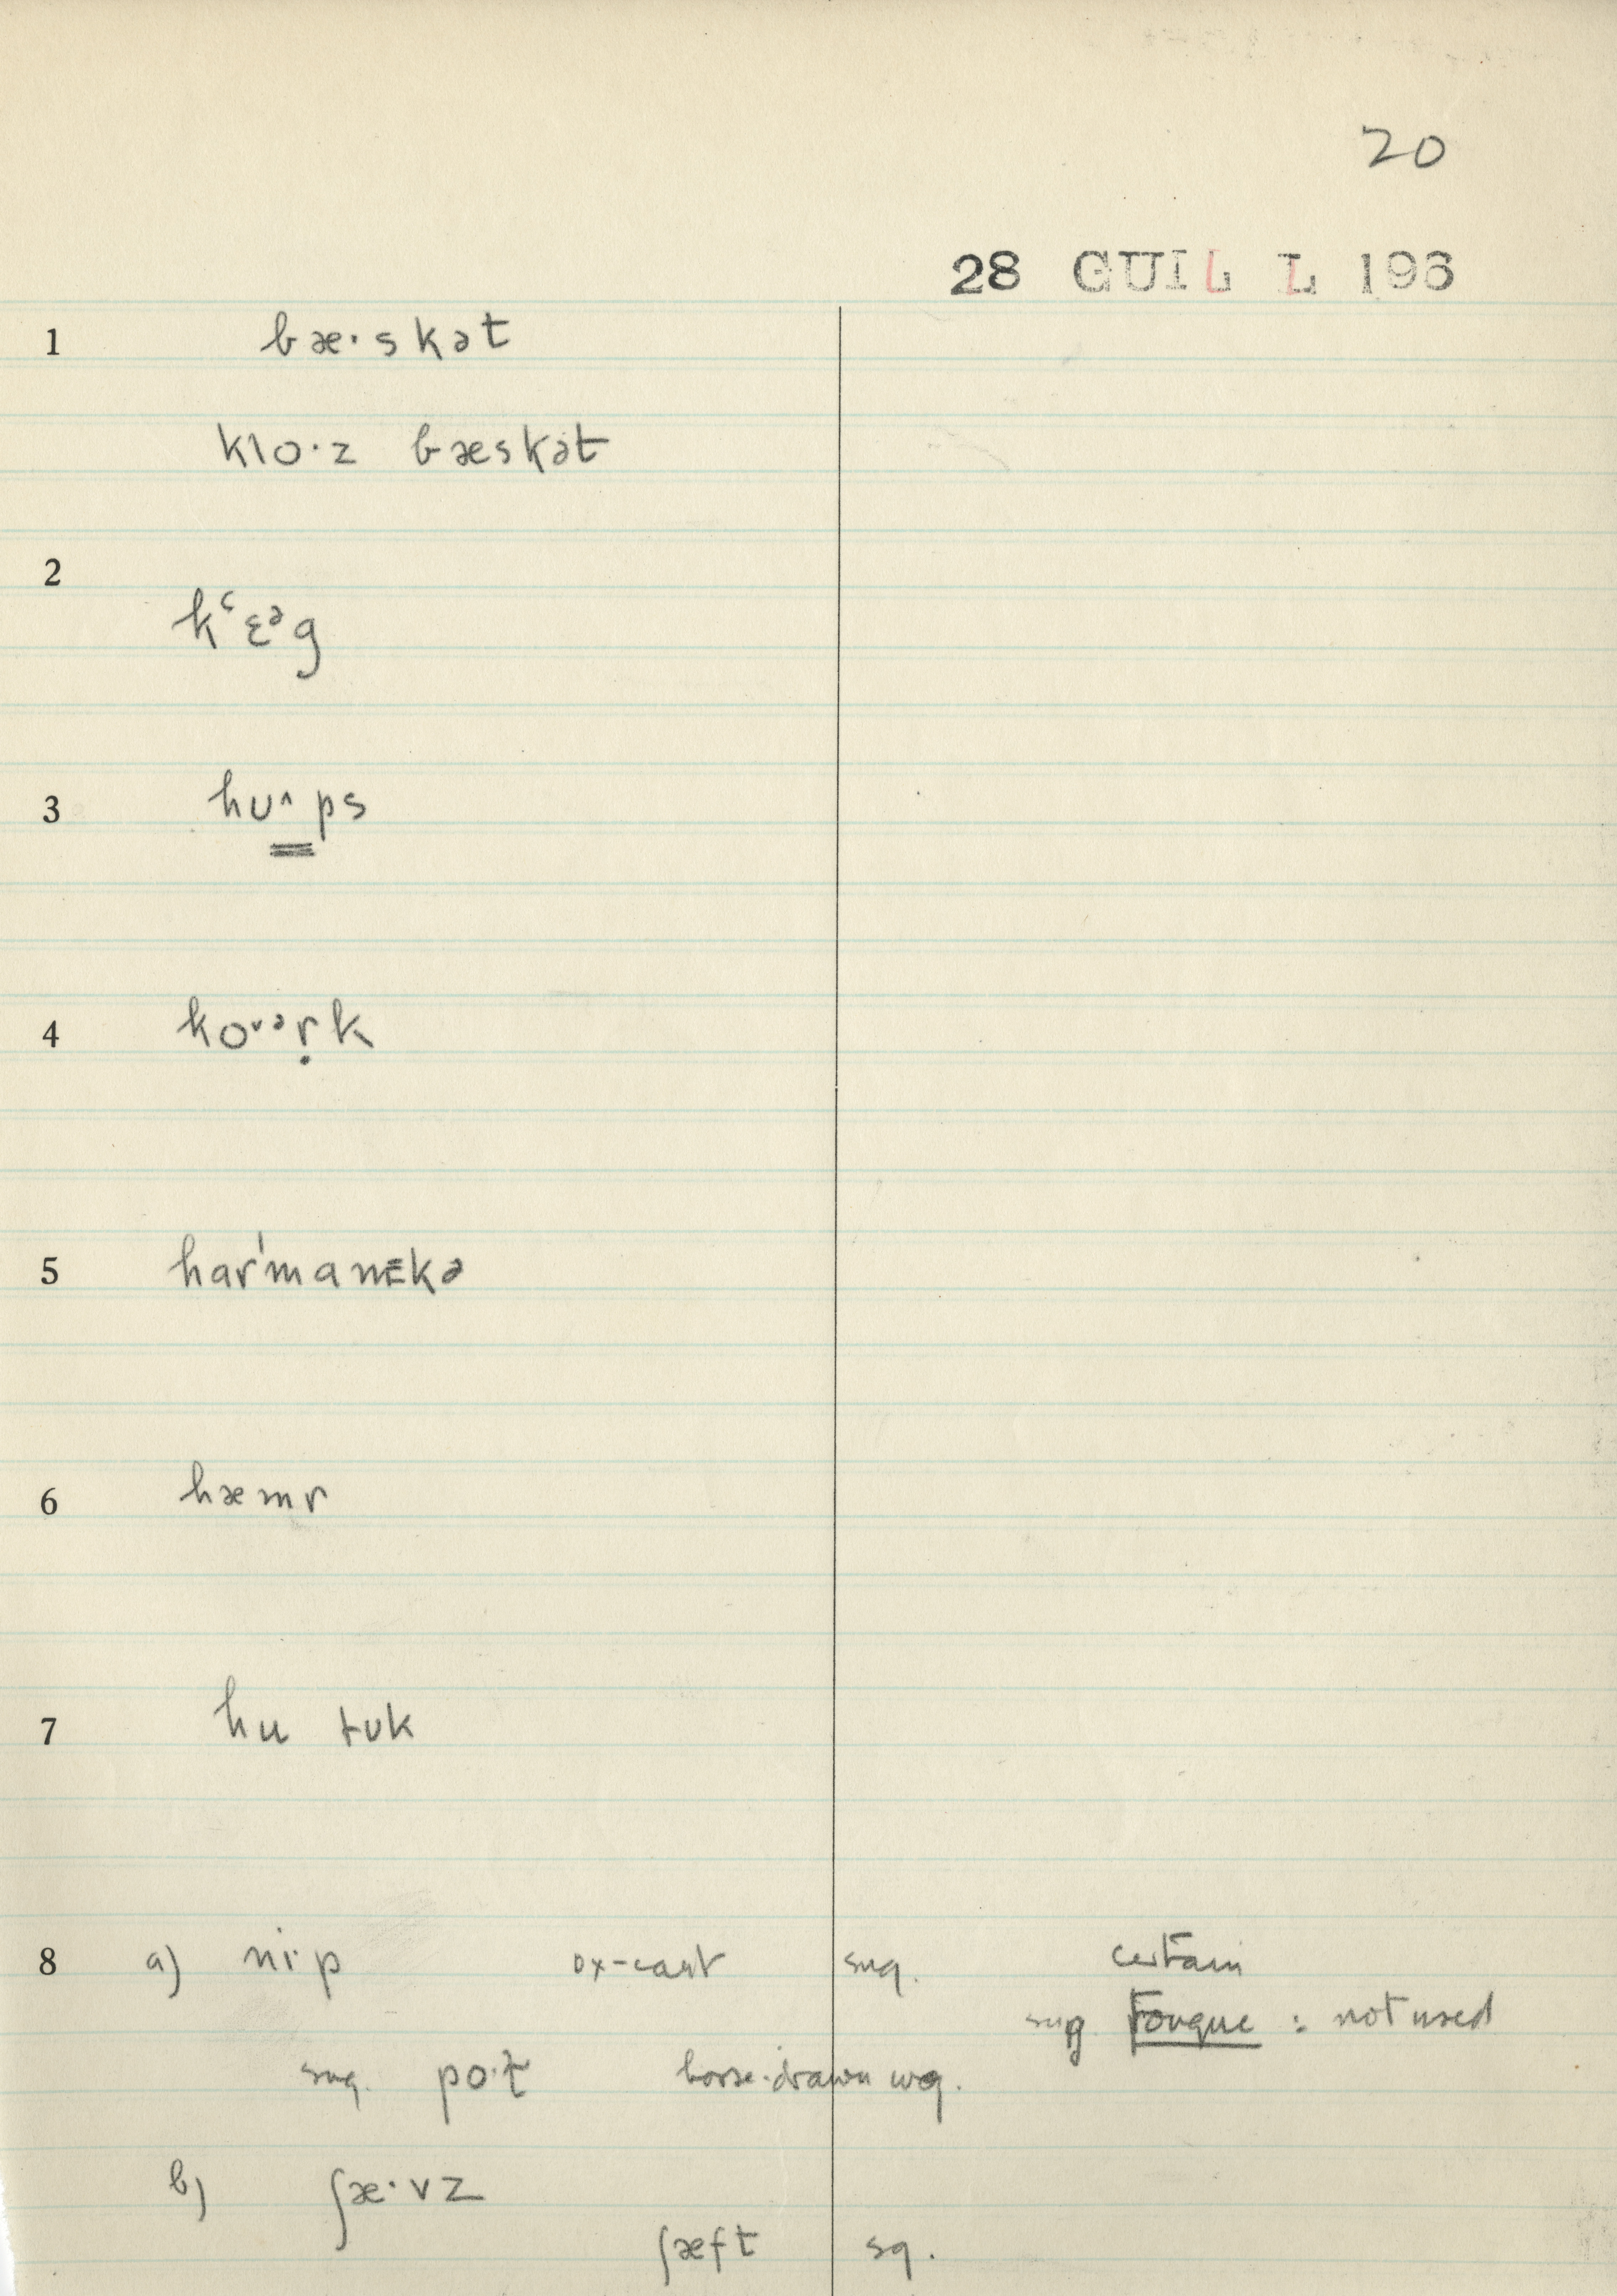 20
28 GUIL L 196
1 bæ·skət
klo·z bæskət
2 kʿɛᵊg
3 hʊ^ps
4 ko˅ᵊṛk
5 har'manɛkə
6 hæmr
7 hu tʊk
8 a) ni·p ox-cart sug. certain
sug tongue : not used
sug. po·l horse-drawn wg.
b) ʃæ·vz
ʃæft sg.